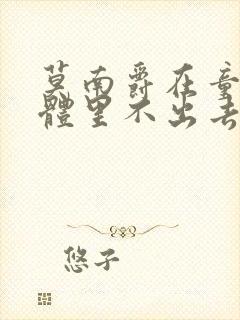 莫南爵在童
體里不出去
悠子